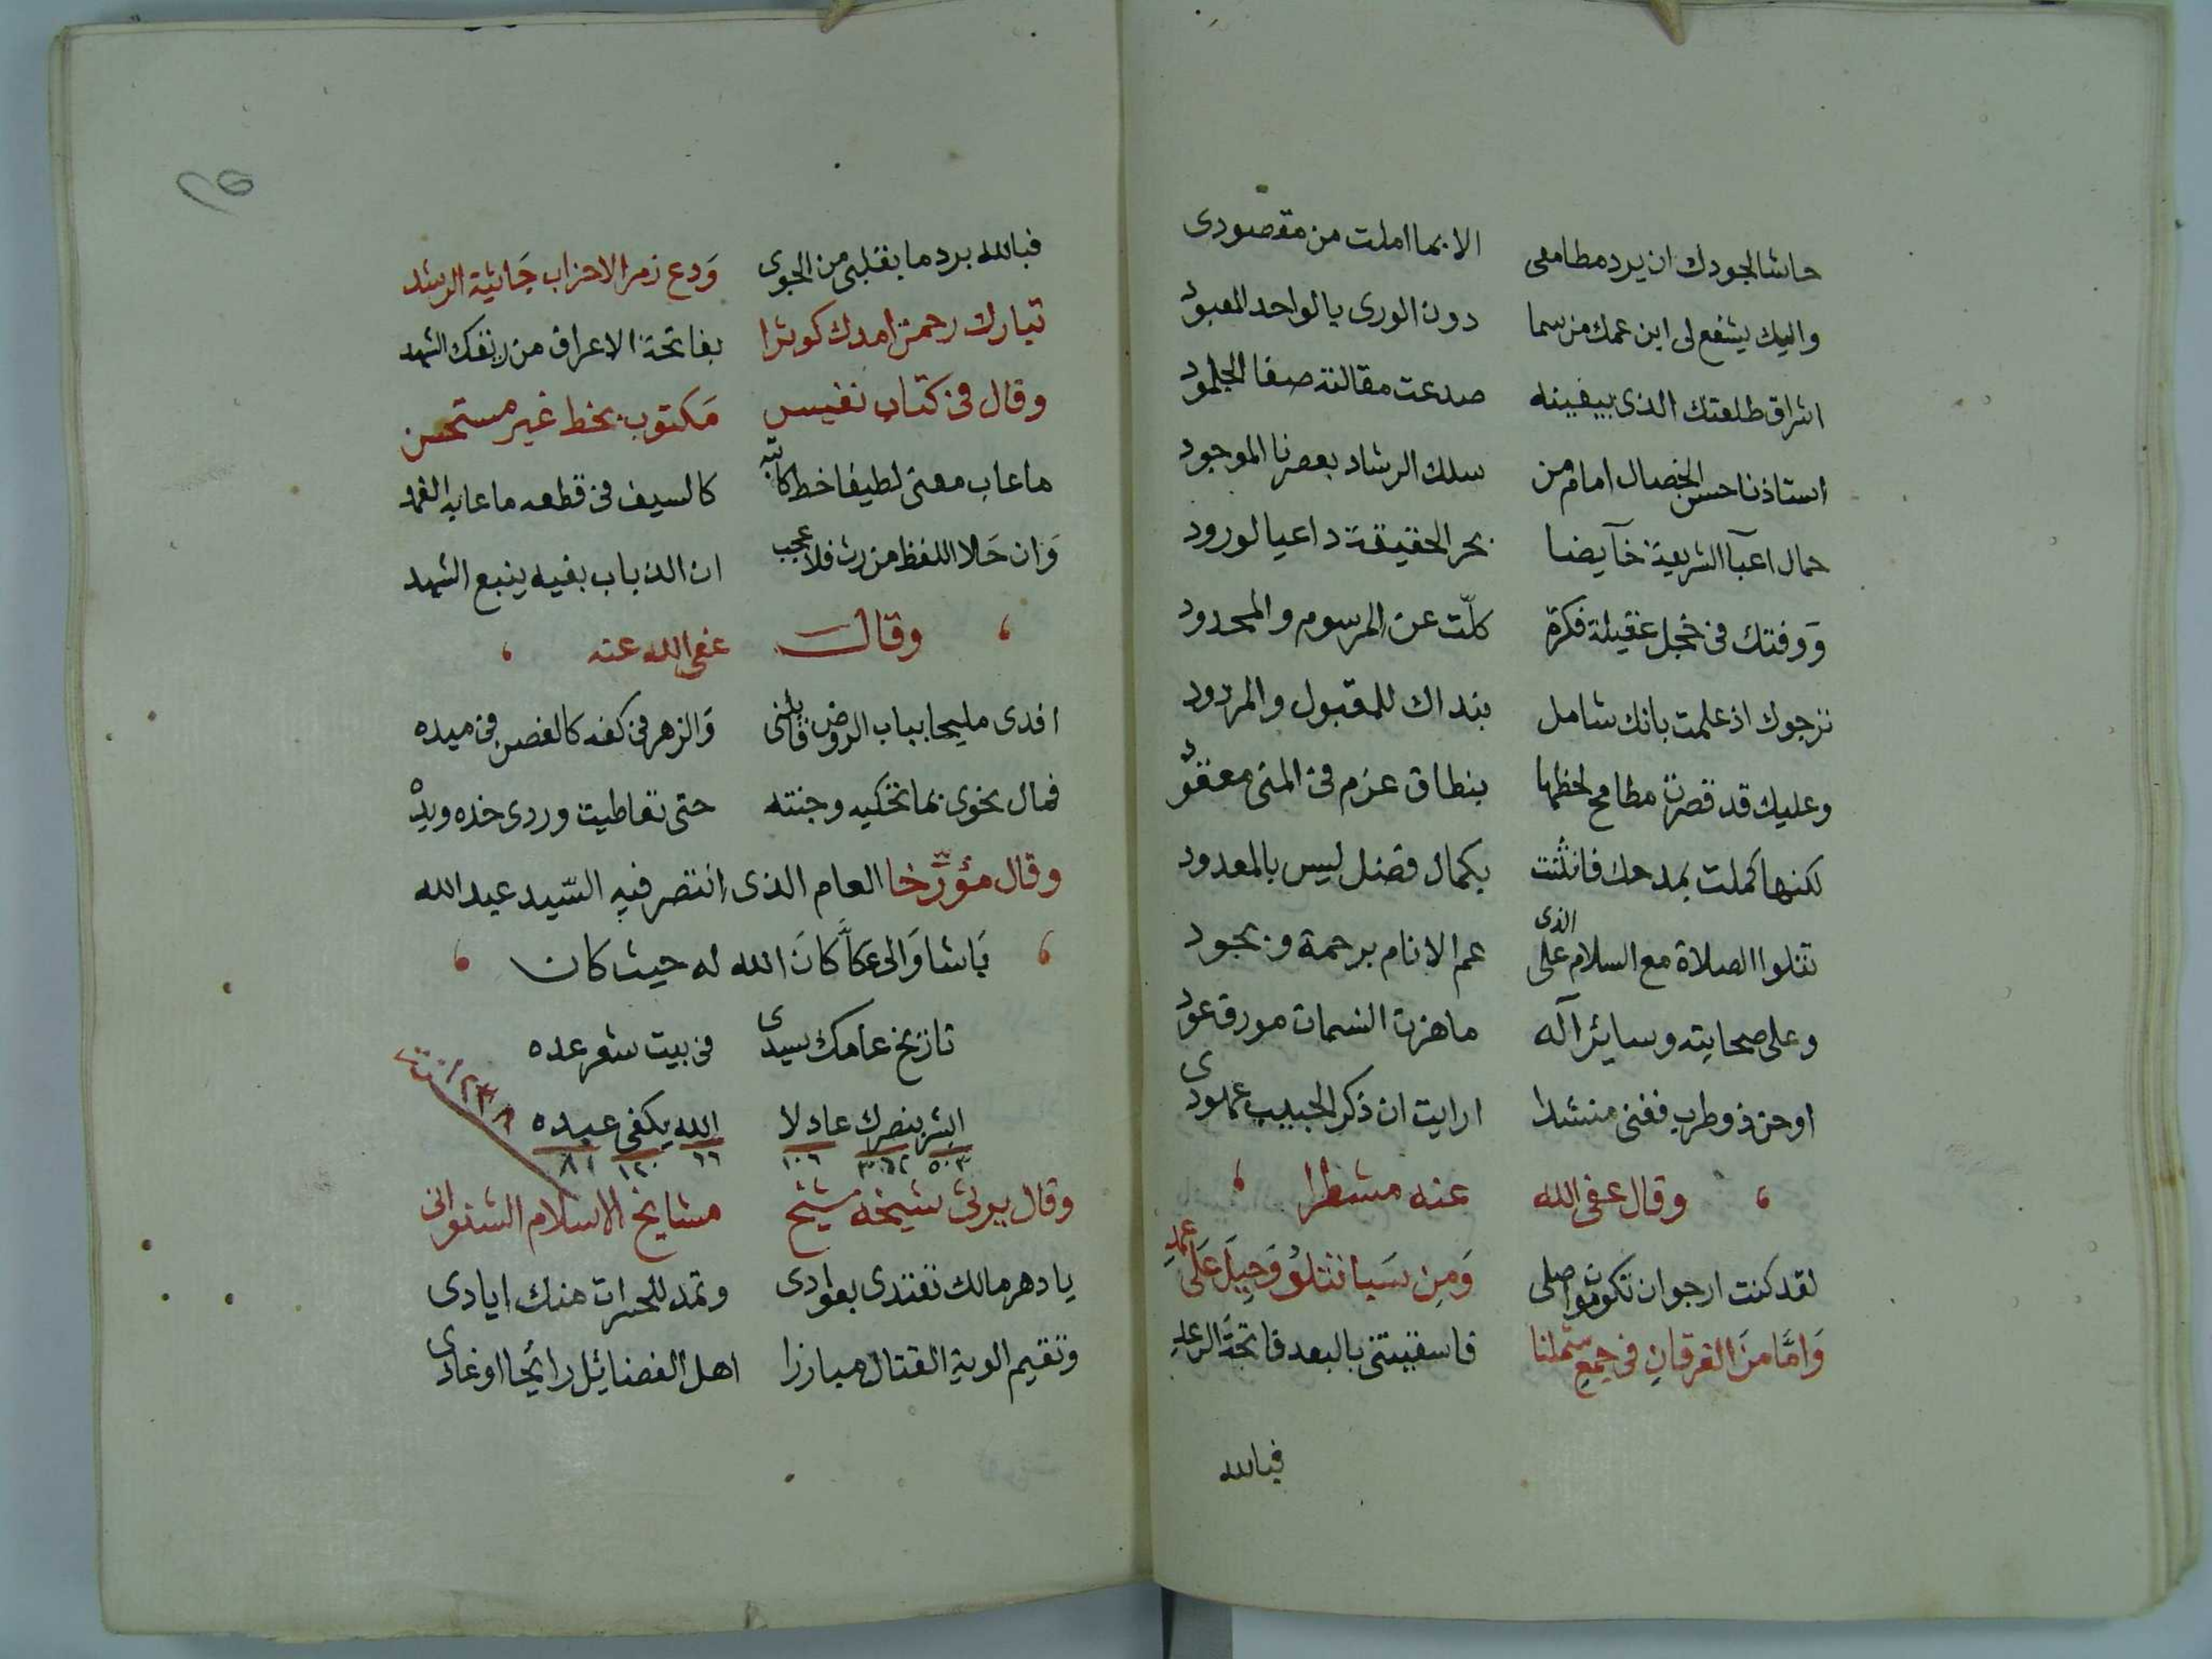 حاشا لجودك ان يرد مطامعى الا بما املت من مقصودى
واليك يشفع لى ابن عمك من سما دون الورى بالواحد المعبود
اشراق طلعتك الذى بيقينه صدعت مقالته صفا الجلمود
استاذنا حسن الخصال امام من سلك الرشاد بعصرنا الموجود
حمال اعبآ الشريعة خآيضا بحر الحقيقة داعيا لورود
ووفتك فى خجل عقيلة فكرة كلّت عن المرسوم والمحدود
نرجوك اذ علمت بانك شامل بنداك للمقبول والمردود
وعليك قد قصرت مطامح لحظها بنطاق عزم فى المنى معقود
لكنها كملت بمدحك فانثنت بكمال فضل ليس بالمعدود
تتلوا الصلاة مع السلام على الذى عم الانام برحمة وبجود
وعلى صحابته وسايرآله ما هزت النسمات مورق عود
اوحن ذو طرب فغنى منشدا ارايت ان ذكر الحبيب عهودى
وقال عفى الله عنه مشطرا
لقد كنت ارجوان تكون مواصلى وَمِن سَبا نتلوُ وَحِيلَ عَلَى عمد
وَامَّا منَ الفرقانِ فى جمعِ شملنا فاسقيتنى بالبعد فاتحةَ الرعد
فبالله
٢٥
فبالله برد ما بقلبى من الجوى وَدع زمر الاحزاب جَاثية الرشد
تبارك رحمن امدك كوثرا بفاتحة الاعراف من ريقك الشهد
وقال فى كتاب نفيس مكتوب بخط غير مستحسن
ما عاب معنى لطيفا خط كاتبه كالسيف فى قطعه ما عابه الغمد
وَان حَلا اللفظ من رث فلا عجب ان الذباب بفيه ينبع الشهد
وقال عفى الله عنه
افدى مليحا بباب الروض قابلنى وَالزهر فى كفه كالغصن فى ميده
فمال نحوى بما تحكيه وجنته حتى تعاطيت وردى خده ويده
وقال مؤرّخا العام الذى انتصر فيه السّيد عبد الله
بَاشا وَالى عَكّا كانَ الله له حيث كان
تاريخ عامك سيدى فى بيت شعر عده
ابشر بنصرك عادلا الله يكفى عبده
٥٠٣ ٣٦٢ ١٠٦ ٦٦ ١٢٠ ٨١
١٢٣٨
وقال يرثى شيخه شيخ مشايخ الاسلام الشنوانى
يا دهر مالك تفتدى بعوادى وتمد للحسرات منك ايادى
وتقيم الوية القتال مبارزا اهل الفضائل رائحا اوغادى